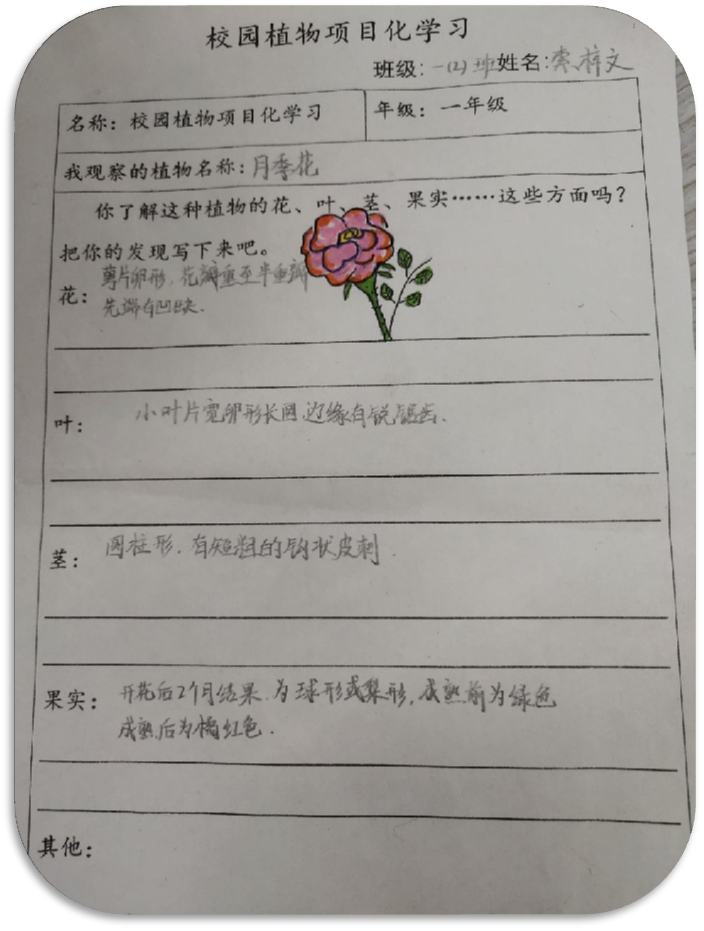 校园植物项目化学习
班级：一(2)班姓名：栾梓文
名称：校园植物项目化学习 年级：一年级
我观察的植物名称：月季花
你了解这种植物的花、叶、茎、果实……这些方面吗？
把你的发现写下来吧。
花：萼片卵形，花瓣重至半重瓣
先端有凹缺.
叶：小叶片宽卵形长圆边缘有锐锯齿.
茎：圆柱形.有短粗的钩状皮刺.
果实：开花后2个月结果.为球形或梨形,成熟前为绿色
成熟后为橘红色.
其他：